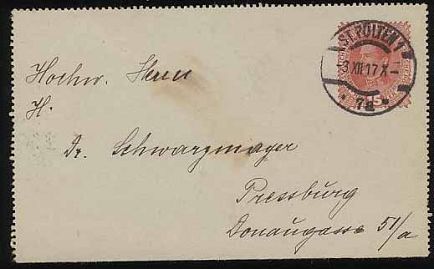 ST. PÖLTEN 1
-3 XII 17 X-
* 7a *
15
Hochw. Herrn
H.
Dr. Schwarzmayer
Pressburg
Donaugasse 51/a